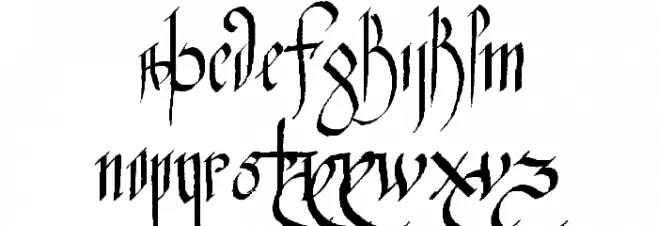 Abcdefghijklm
nopqrstuvwxyz